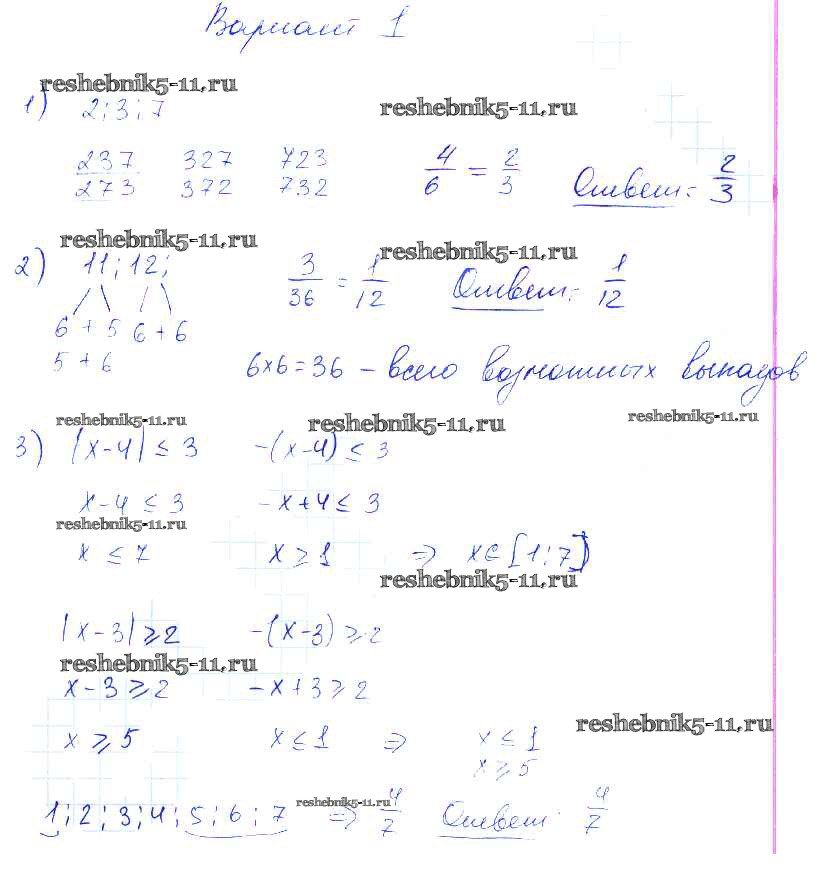 Вариант 1
reshebnik5-11.ru
1) 2; 3; 7
reshebnik5-11.ru
237 327 723 4/6 = 2/3 Ответ: 2/3
273 372 732
reshebnik5-11.ru
reshebnik5-11.ru
2) 11; 12; 3/36 = 1/12 Ответ: 1/12
6 + 5 6 + 6
5 + 6 6×6=36 – всего возможных выпадов
reshebnik5-11.ru reshebnik5-11.ru reshebnik5-11.ru
3) |x-4| ≤ 3 -(x-4) ≤ 3
x-4 ≤ 3 -x+4 ≤ 3
reshebnik5-11.ru
x ≤ 7 x ≥ 1 ⇒ x∈[1;7]
reshebnik5-11.ru
|x-3| ≥ 2 -(x-3) ≥ 2
reshebnik5-11.ru
x-3 ≥ 2 -x+3 ≥ 2
reshebnik5-11.ru
x ≥ 5 x ≤ 1 ⇒ x ≤ 1
x ≥ 5
reshebnik5-11.ru
1; 2; 3; 4; 5; 6; 7 ⇒ 4/7 Ответ: 4/7